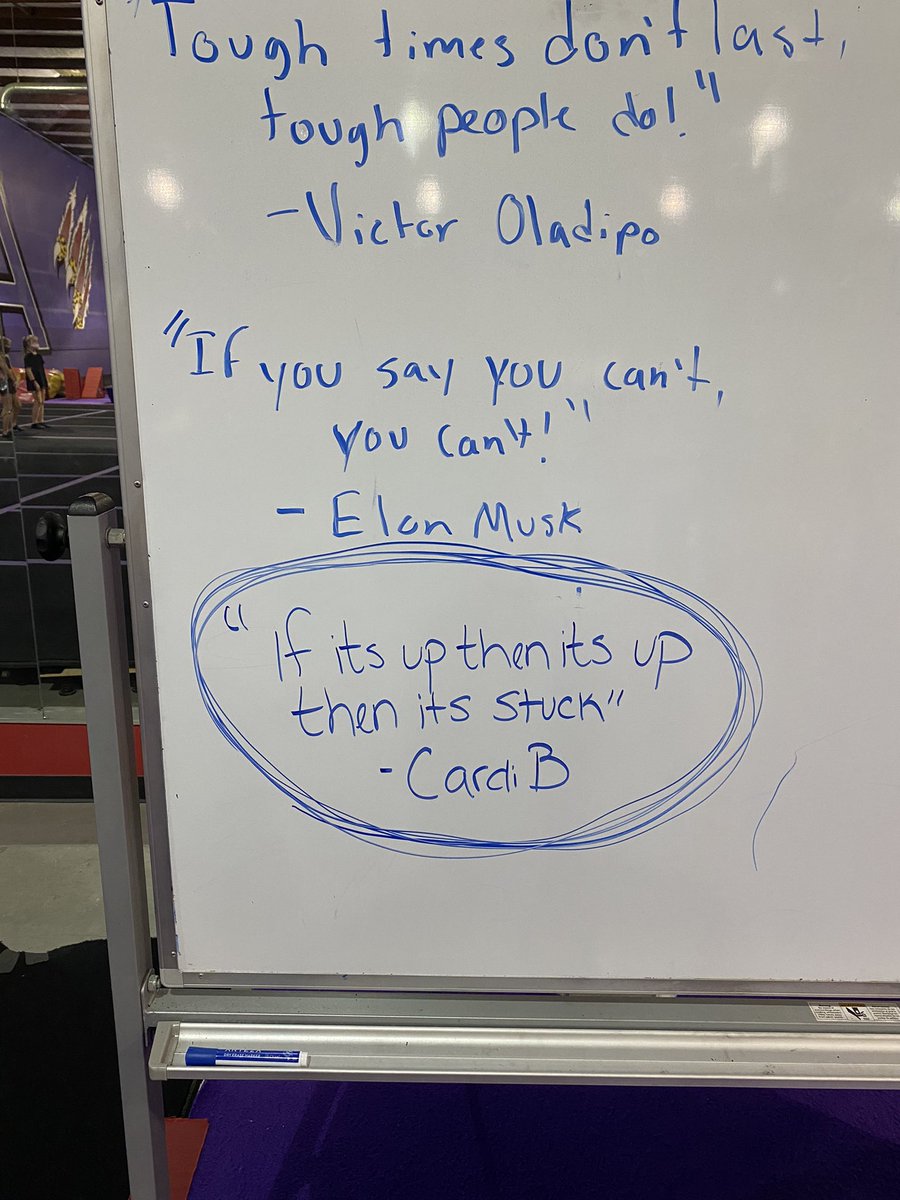 "Tough times don't last,
tough people do!"
-Victor Oladipo
"If you say you can't,
you can't!"
- Elon Musk
"If its up then its up
then its stuck"
- Cardi B
DRY ERASE MARKER